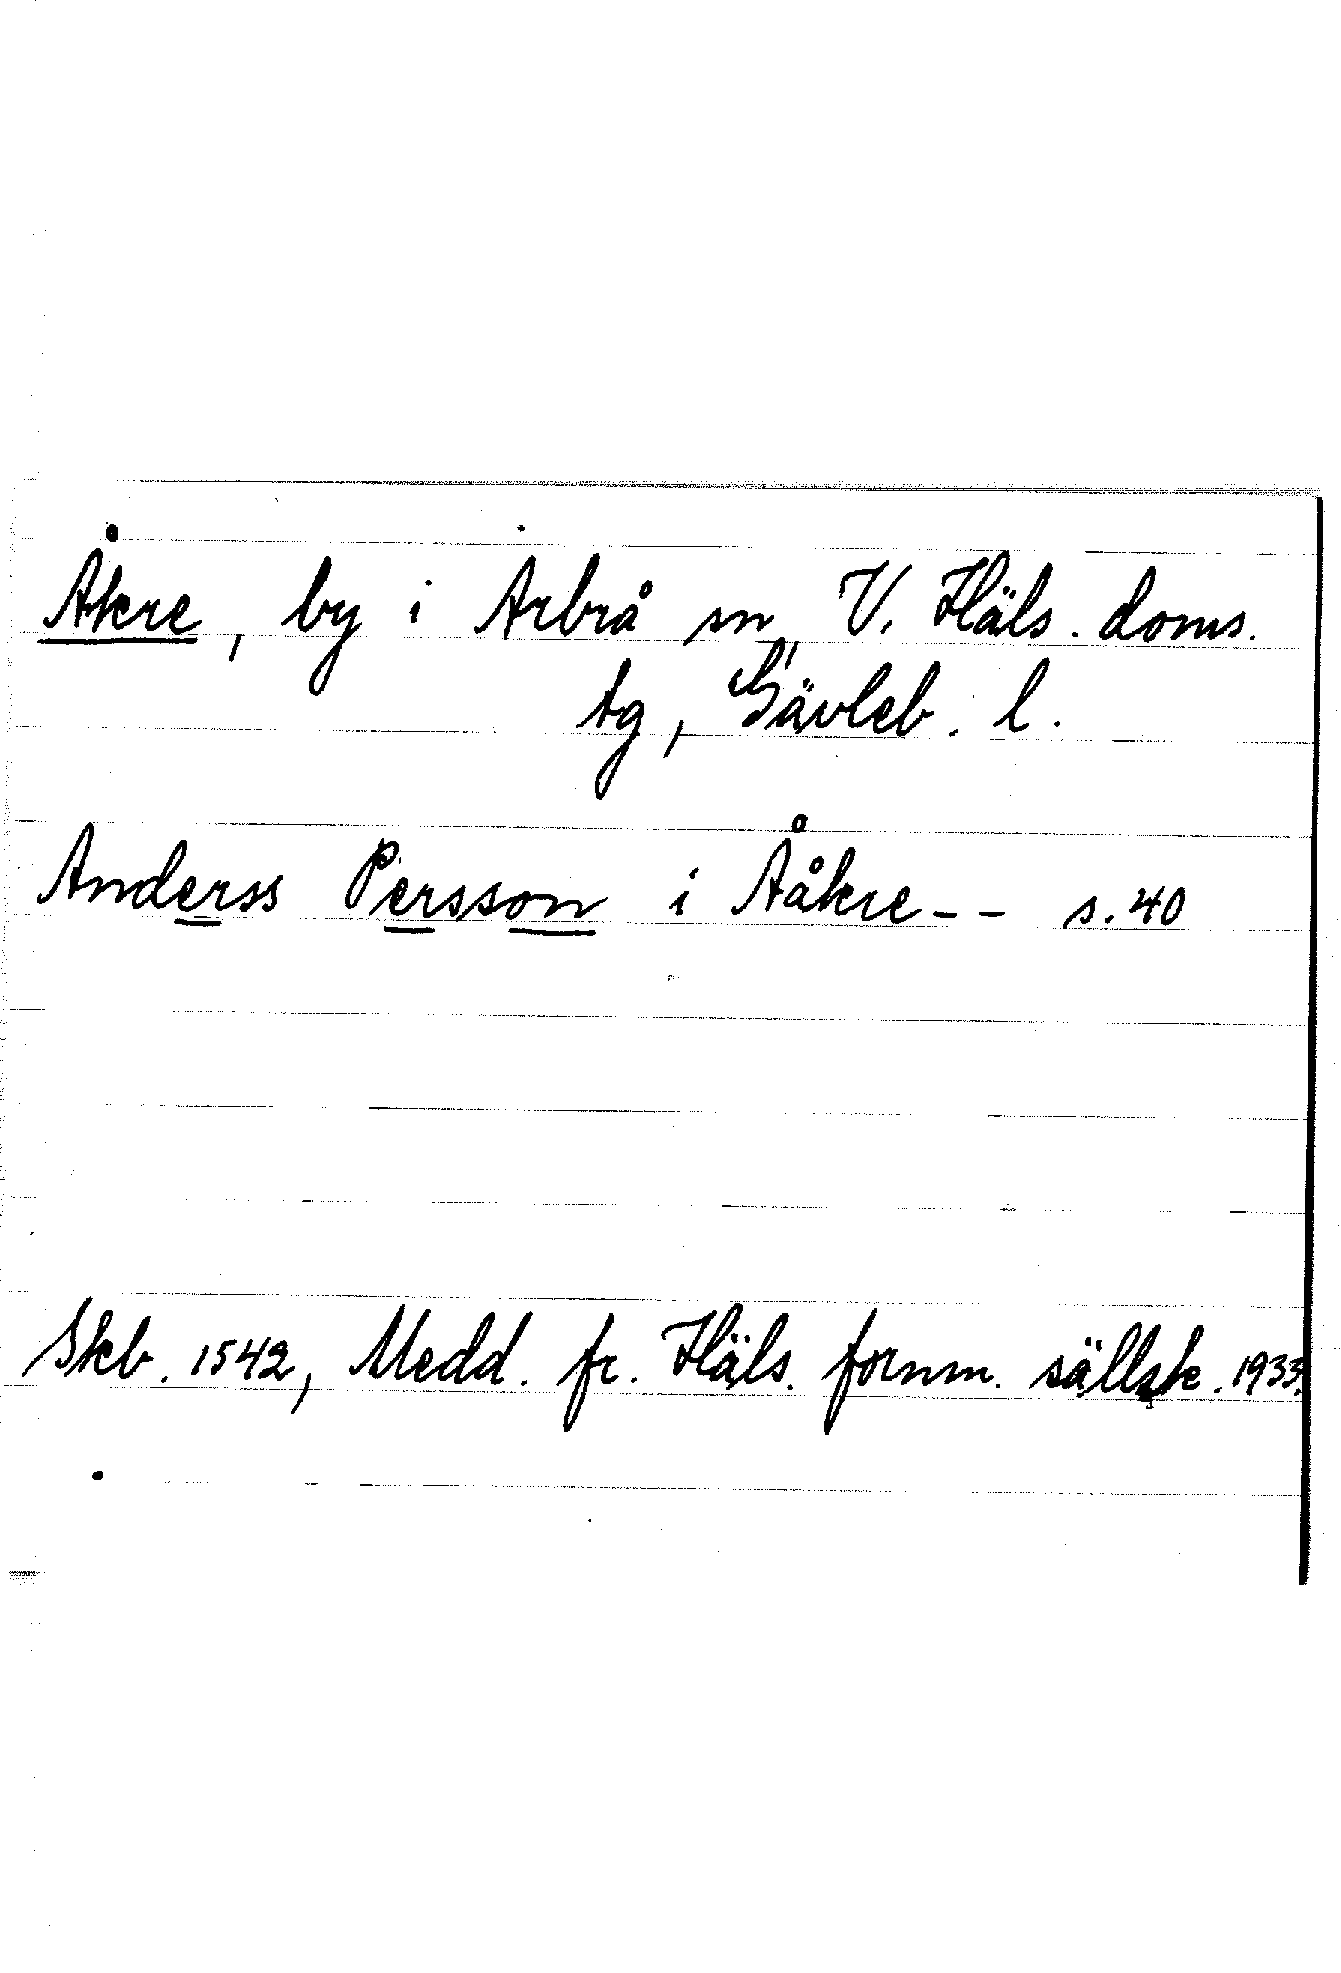 Åkre, by i Arbrå sn, V. Häls. doms.
tg, Gävleb. l.
Anderss Persson i Ååkre-- s. 40
Skb. 1542, Medd. fr. Häls. fornm. sällsk. 1933.